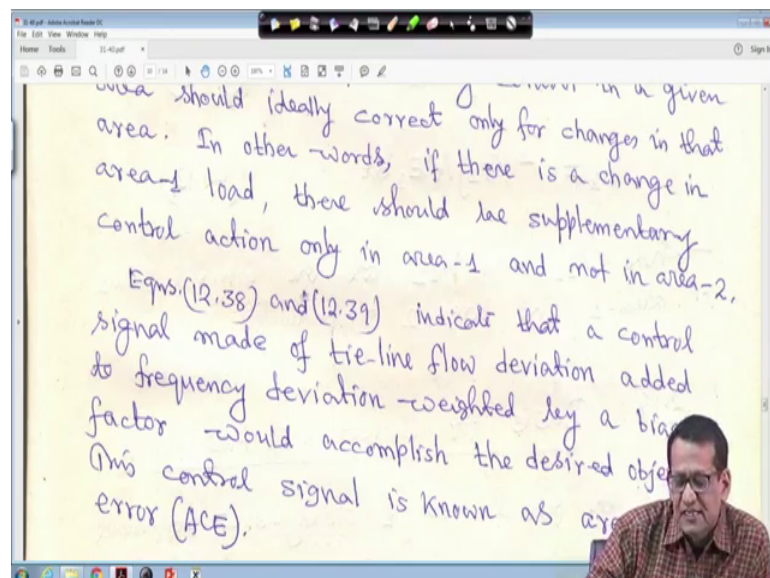 31-40.pdf - Adobe Acrobat Reader DC
File Edit View Window Help
Home Tools 31-40.pdf × Sign In
should ideally correct only for changes in that
area. In other words, if there is a change in
area-1 load, there should be supplementary
control action only in area-1 and not in area-2.
Eqns.(12.38) and (12.39) indicate that a control
signal made of tie-line flow deviation added
to frequency deviation weighted by a
factor would accomplish the desired
This control signal is known as
error (ACE).